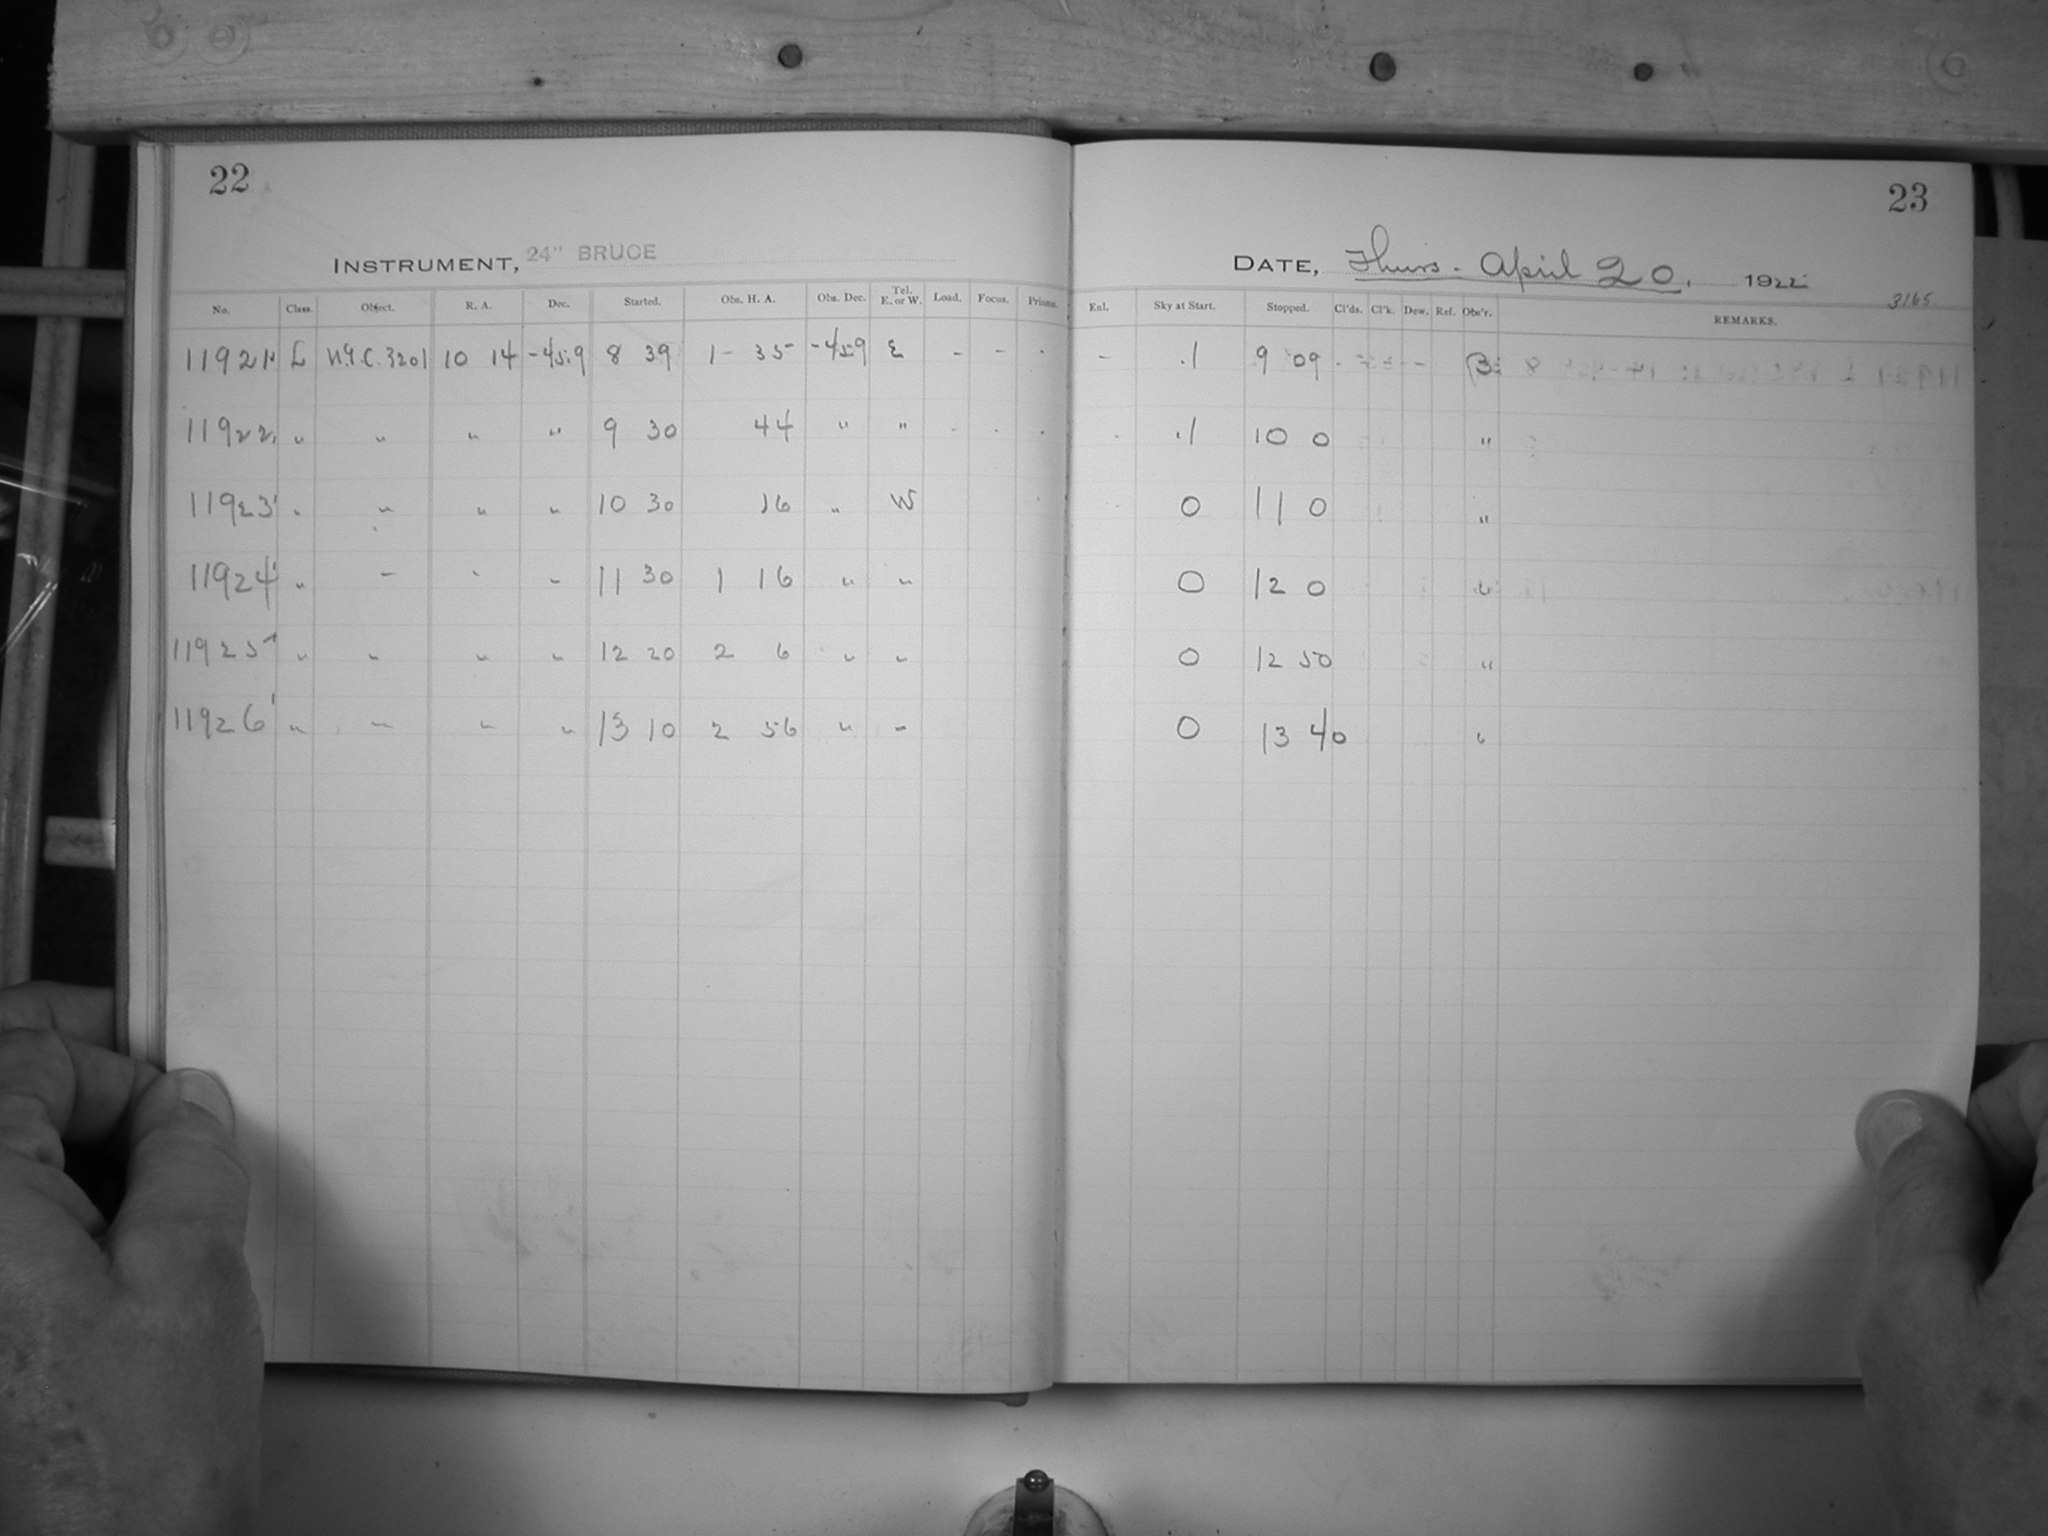 22
INSTRUMENT, 24" BRUCE
No. Class. Object. R. A. Dec. Started. Obs. H. A. Obs. Dec. Tel. E. or W. Load. Focus. Prisms.
11921 L N.G.C. 3201 10 14 -45.9 8 39 1- 35 -45.9 E - - .
11922 " " " " 9 30 44 " " . . .
11923 " " " " 10 30 16 " W
11924 " " " " 11 30 1 16 " "
11925 " " " " 12 20 2 6 " "
11926 " " " " 13 10 2 56 " "
23
DATE, Thurs. April 20, 1922
3165
Enl. Sky at Start. Stopped. Cl'ds. Cl'k. Dew. Ref. Obs'r. REMARKS.
- .1 9 09 B
.1 10 0 "
0 11 0 "
0 12 0 "
0 12 50 "
0 13 40 "